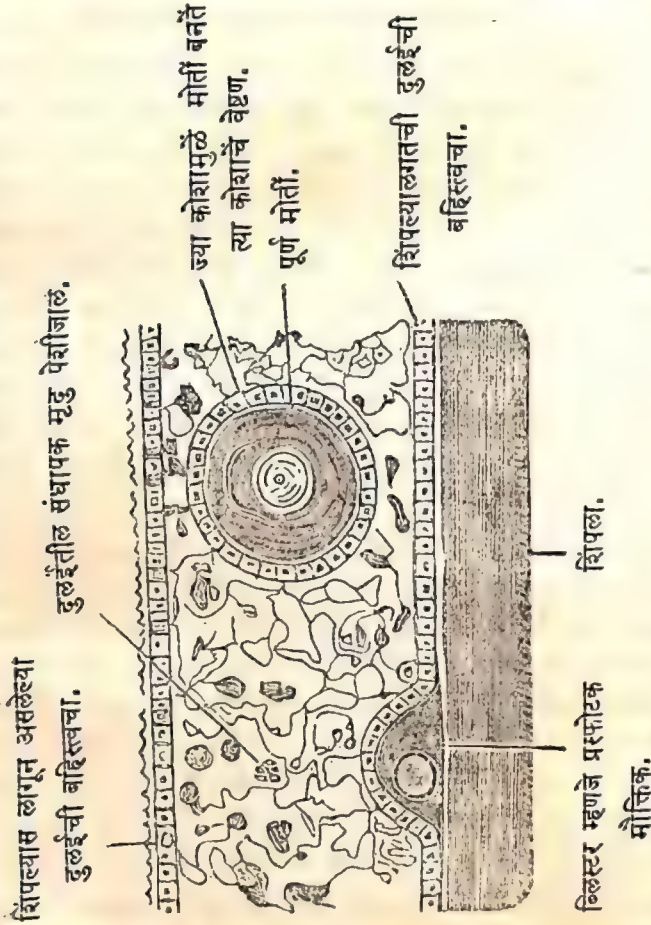 शिंपल्यास लागून असलेल्या
दुलईची बहिस्त्वचा.
दुलईतील संधापक मृदु पेशीजाल.
ज्या कोशामुळें मोतीं बनतें
त्या कोशाचें वेष्टण.
पूर्ण मोतीं.
शिंपल्यालगतची दुलईची
बहिस्त्वचा.
ब्लिस्टर म्हणजे प्रस्फोटक
मौक्तिक.
शिंपला.